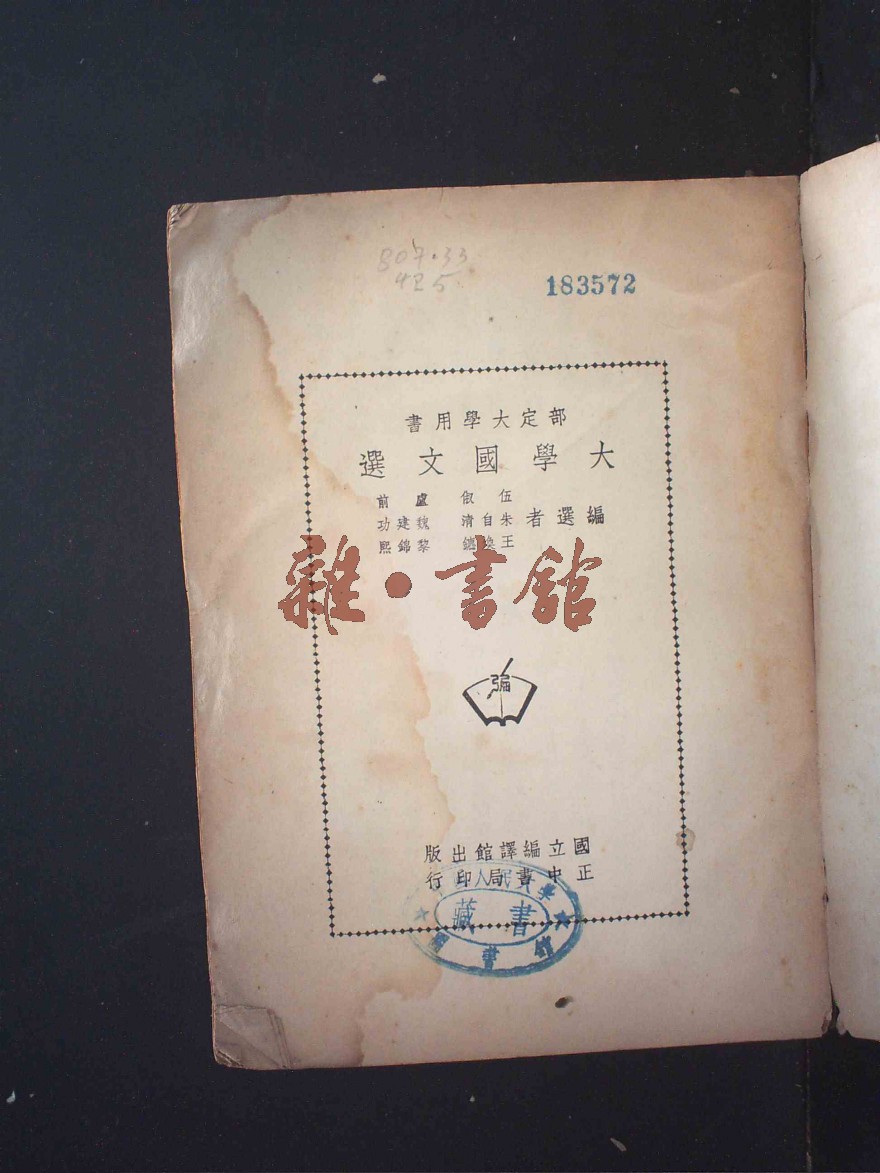 807.33
425
183572
部定大學用書
大學國文選
編選者
伍俶 盧前
朱自清 魏建功
王煥鑣 黎錦熙
雜·書館
編
國立編譯館出版
正中書局印行
人民
學
書藏
圖書館